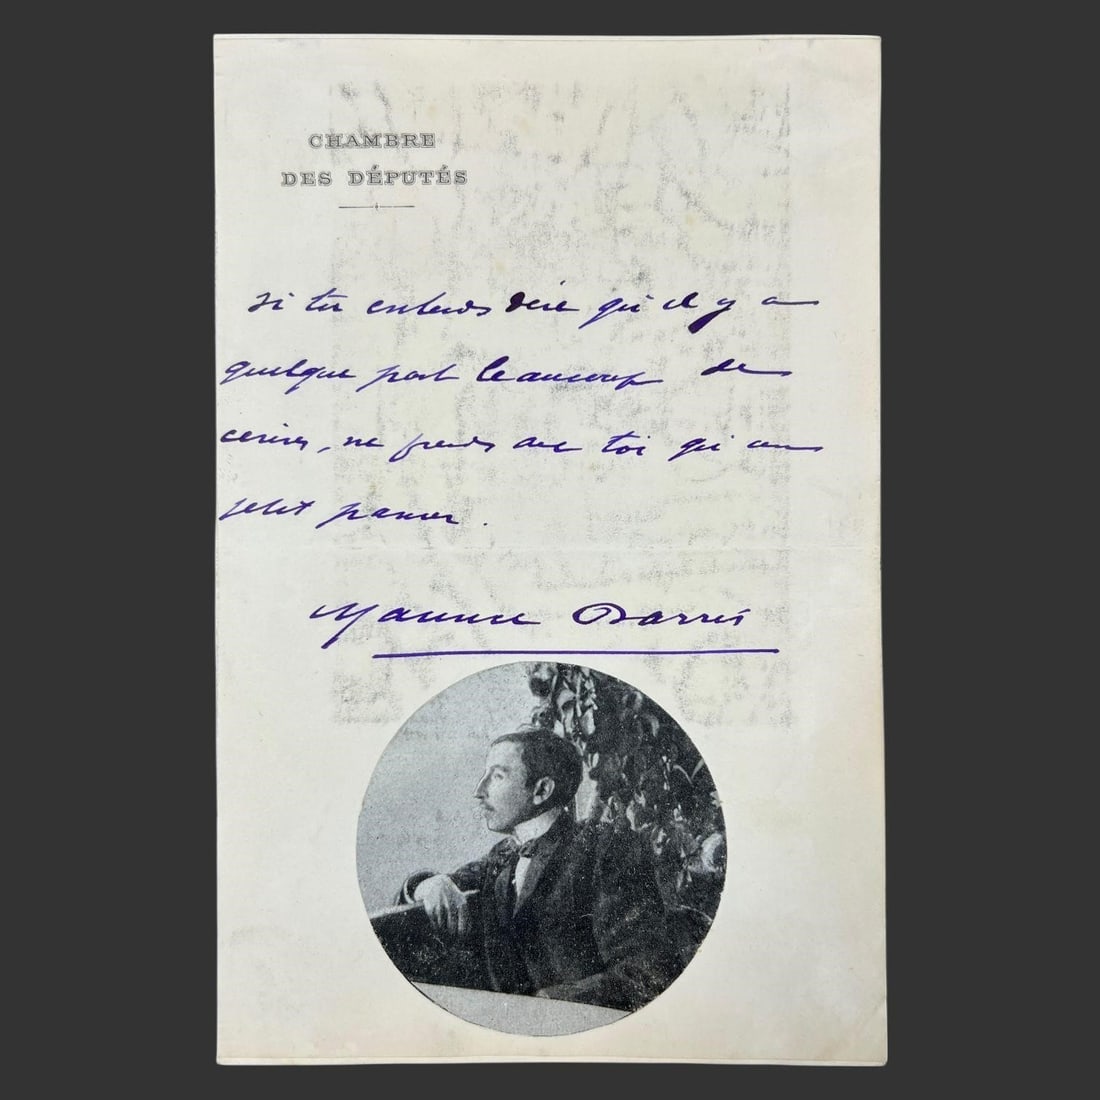 CHAMBRE
DES DÉPUTÉS
si tu entends dire qu'il y a
quelque part beaucoup de
cerises, ne prends avec toi qu'un
petit panier.
Maurice Barrès